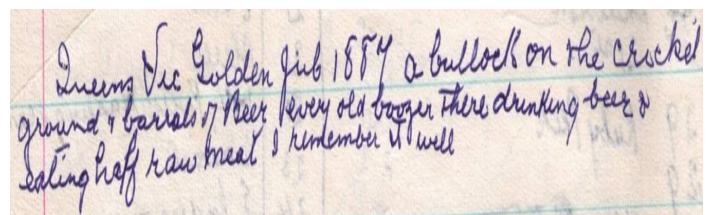 Queens Vic Golden Jub 1887 a bullock on the cricket
ground & barrals of Beer every old boozer there drinking beer &
eating half raw meat I remember it well